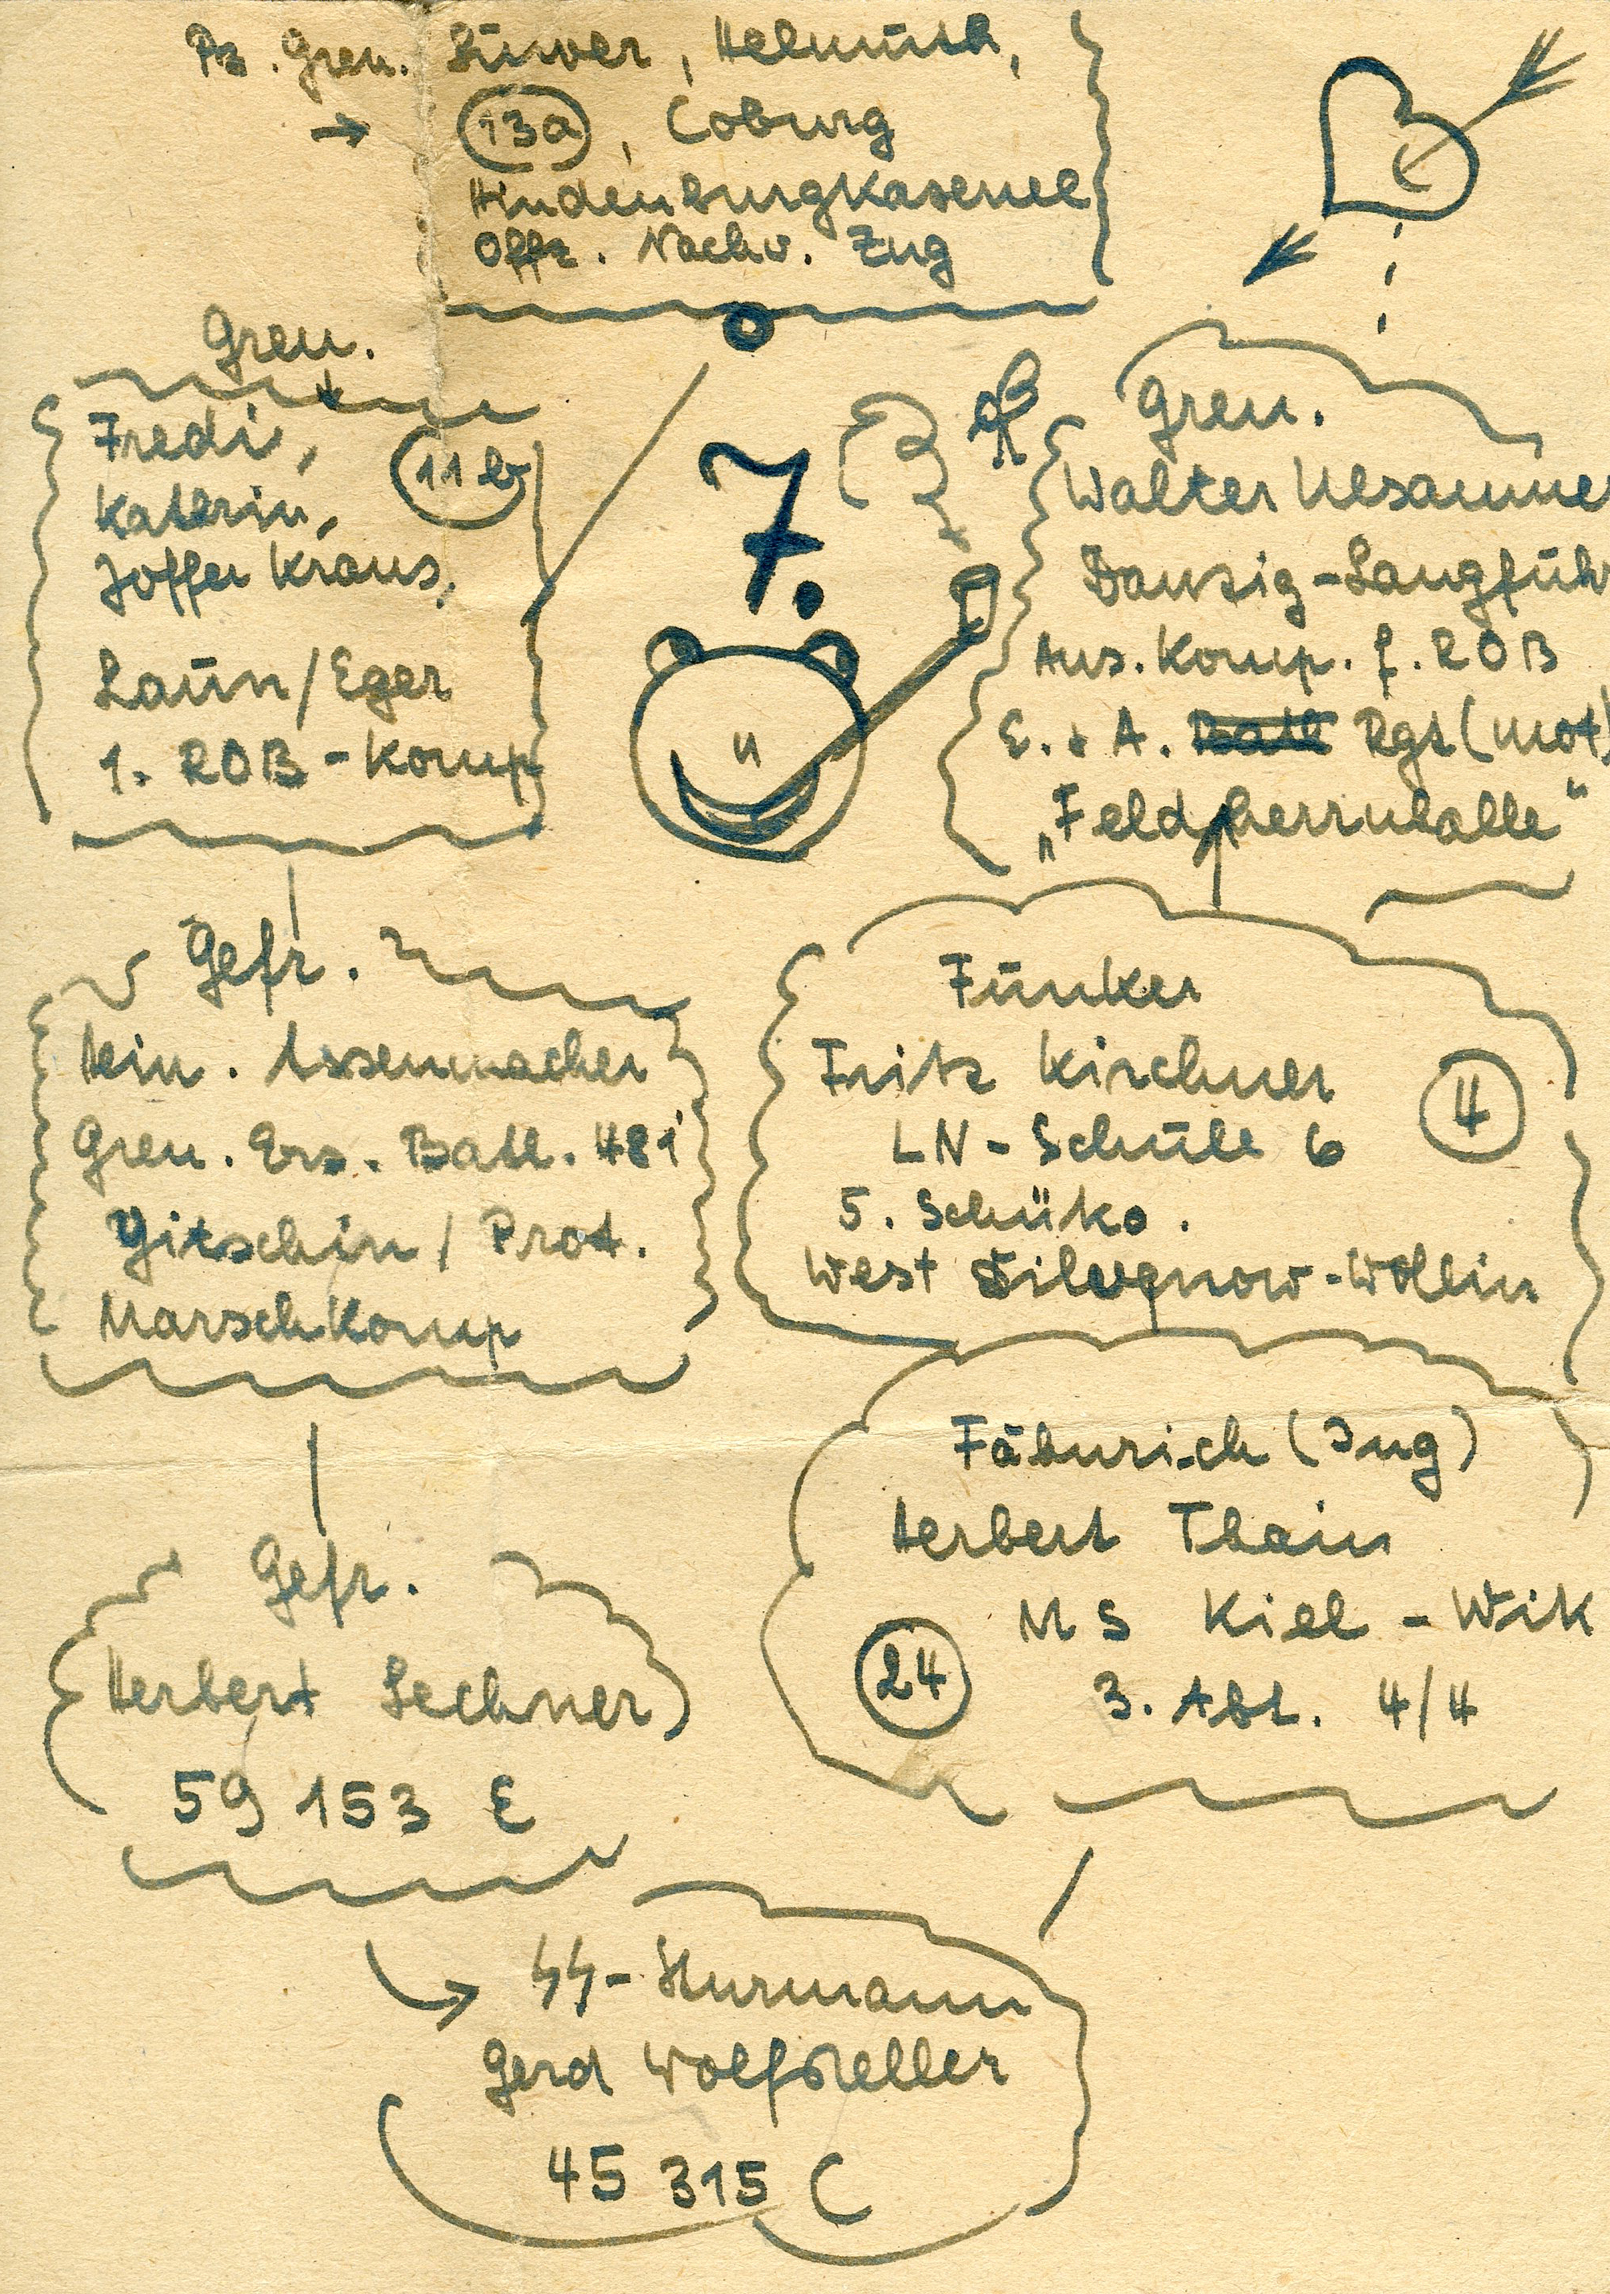 Pz. Gren. Lürver, Helmuth,
→ 13a, Coburg
Hindenburgkaserne
Offz. Nachw. Zug
Gren.
Fredi, 11b
Kathrin,
Joffer Kraus,
Laun/Eger
1. ROB-Komp
7.
Gren.
Walter Ulsamme
Danzig-Langfüh
Aus. Komp. f. ROB
E. + A. Batl Rgt (mot)
„Feldherrnhalle"
Gefr.
Hein. Assenmacher
Gren. Ers. Batl. 481
Gitschin / Prot.
Marschkomp
Funker
Fritz Kirchner
4
LN-Schule 6
5. Schüko.
West Dievenow-Wollin
Gefr.
Herbert Lechner
59 153 E
Fähnrich (Ing)
Herbert Thain
MS Kiel-Wik
24
3. Abt. 4/4
SS-Sturmann
Gerd
45 315 C